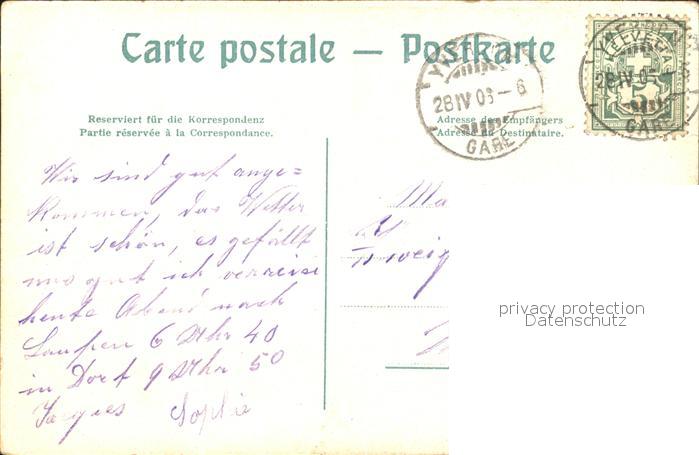 Carte postale — Postkarte
Reserviert für die Korrespondenz
Partie réservée à la Correspondance.
Adresse des Empfängers
Adresse du Destinataire.
28 IV 06 – 6
GARE
HELVETIA
5
28 IV 06 – 6
GARE
Wir sind gut ange=
kommen, das Wetter
ist schön, es gefällt
uns gut ich verreise
heute Abend nach
Laupen 6 Uhr 40
in Dorf 9 Uhr 50
Jacques Sophie
Ma
privacy protection
Datenschutz